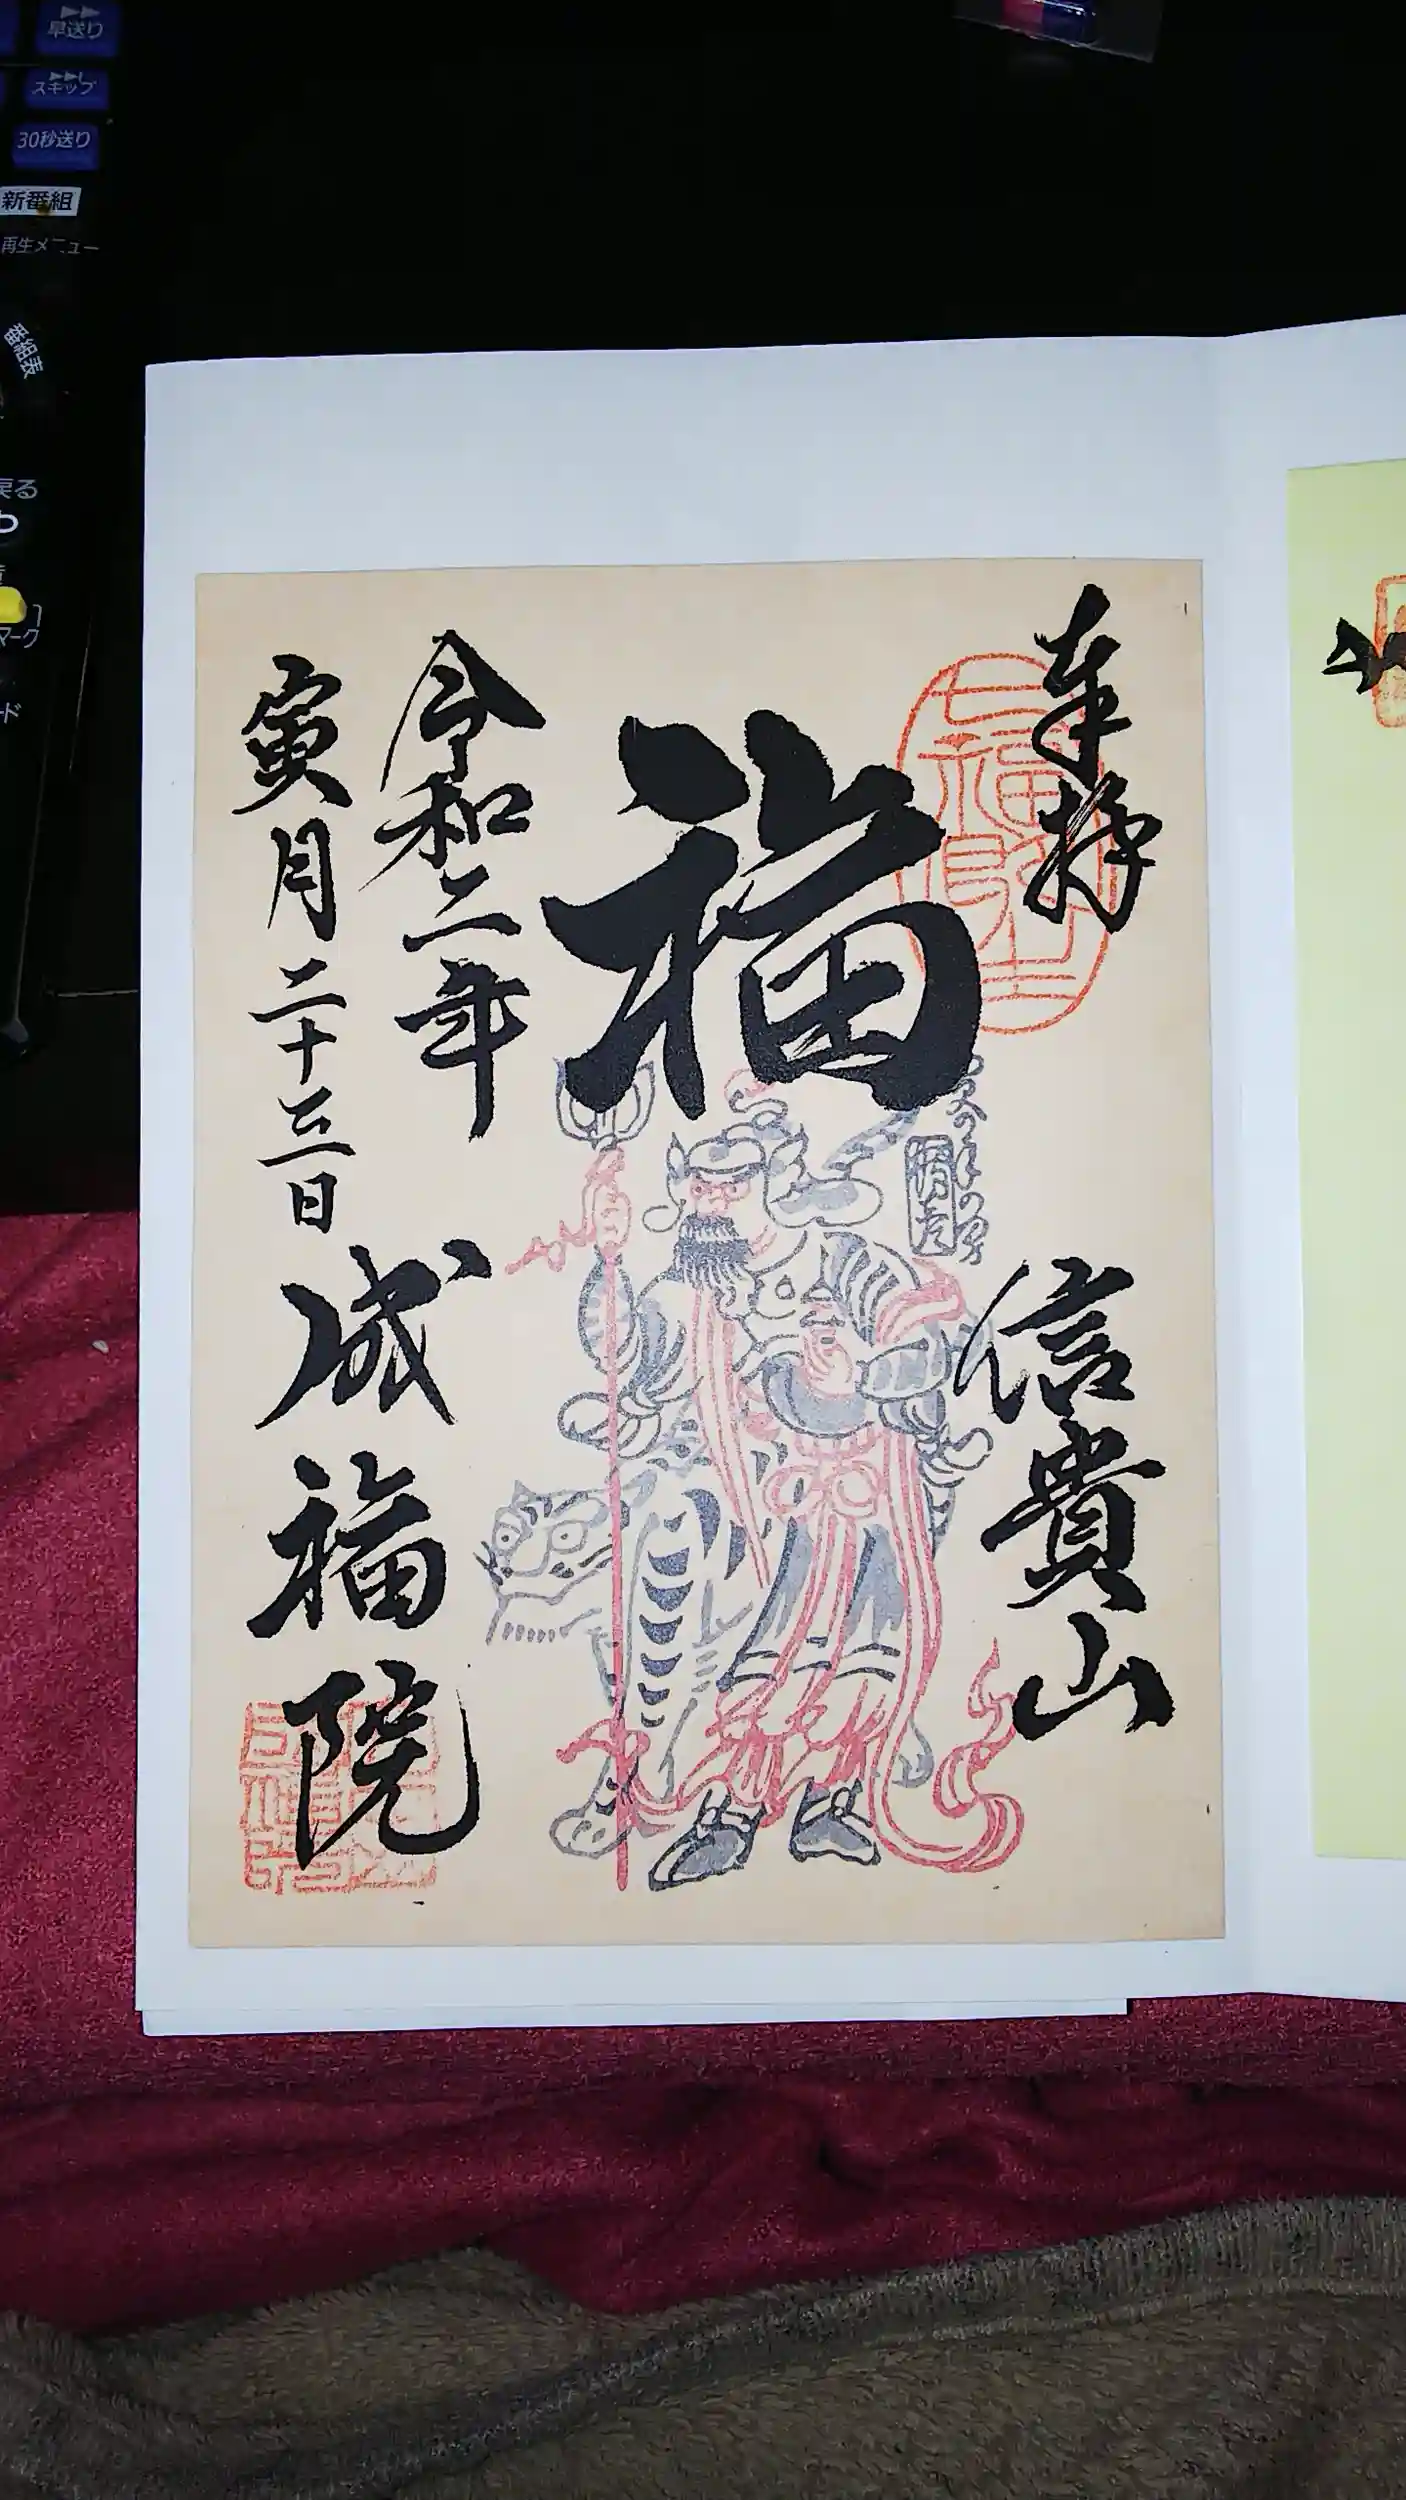 早送り
スキップ
30秒送り
新番組
再生メニュー
番組表
戻る
マーク
ド
奉拝
信貴山
福
七福即生
令和二年
寅月二十三日
成福院